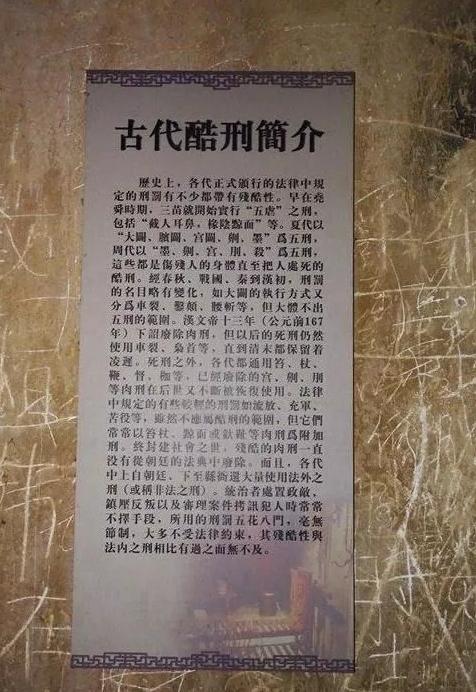 古代酷刑簡介
歷史上，各代正式頒行的法律中規
定的刑罰有不少都帶有殘酷性。早在堯
舜時期，三苗就開始實行“五虐”之刑，
包括“截人耳鼻，椓陰黥面”等。夏代以
“大闢、臏闢、宮闢、劓、墨”爲五刑，
周代以“墨、劓、宮、刖、殺”爲五刑，
這些都是傷殘人的身體直至把人處死的
酷刑。經春秋、戰國、秦到漢初，刑罰
的名目略有變化，如大闢的執行方式又
分爲車裂、鑿顛、腰斬等，但大體不出
五刑的範圍。漢文帝十三年（公元前167
年）下詔廢除肉刑，但以后的死刑仍然
使用車裂、梟首等，直到清末都保留着
凌遲。死刑之外，各代都通用笞、杖、
鞭、督、枷等，已經廢除的宮、劓、刖
等肉刑在后世又不斷被恢復使用。法律
中規定的有些較輕的刑罰如流放、充軍、
苦役等，雖然不應屬酷刑的範圍，但它們
常常以笞杖、黥面或釱鞭等肉刑爲附加
刑。終封建社會之世，殘酷的肉刑一直
没有從朝廷的法典中廢除。而且，各代
中上自朝廷、下至縣衙還大量使用法外之
刑（或稱非法之刑）。統治者處置政敵、
鎮壓反叛以及審理案件拷訊犯人時常常
不擇手段，所用的刑罰五花八門，毫無
節制，大多不受法律約束，其殘酷性與
法内之刑相比有過之而無不及。